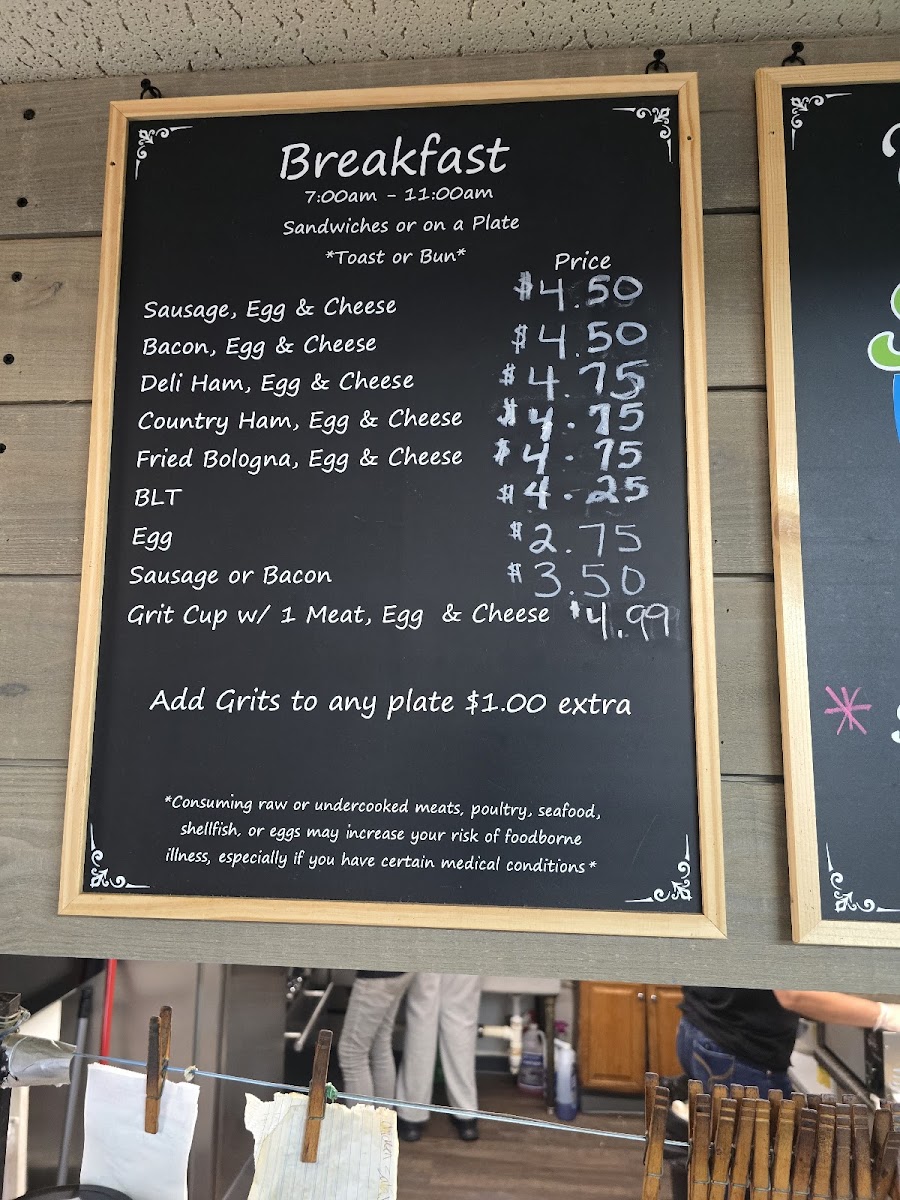 Breakfast
7:00am - 11:00am
Sandwiches or on a Plate
*Toast or Bun*
Price
Sausage, Egg & Cheese $4.50
Bacon, Egg & Cheese $4.50
Deli Ham, Egg & Cheese $4.75
Country Ham, Egg & Cheese $4.75
Fried Bologna, Egg & Cheese $4.75
BLT $4.25
Egg $2.75
Sausage or Bacon $3.50
Grit Cup w/ 1 Meat, Egg & Cheese $4.99
Add Grits to any plate $1.00 extra
*Consuming raw or undercooked meats, poultry, seafood,
shellfish, or eggs may increase your risk of foodborne
illness, especially if you have certain medical conditions*